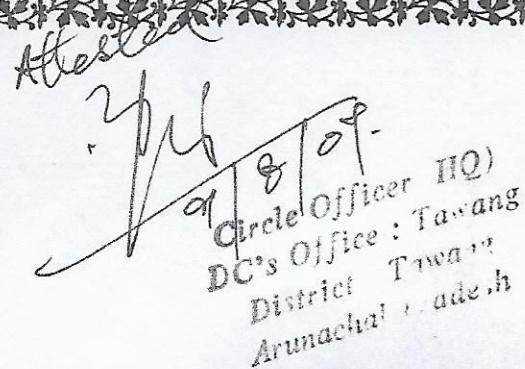 Attested
01/8/09.
Circle Officer HQ)
DC's Office : Tawang
District Tawang
Arunachal